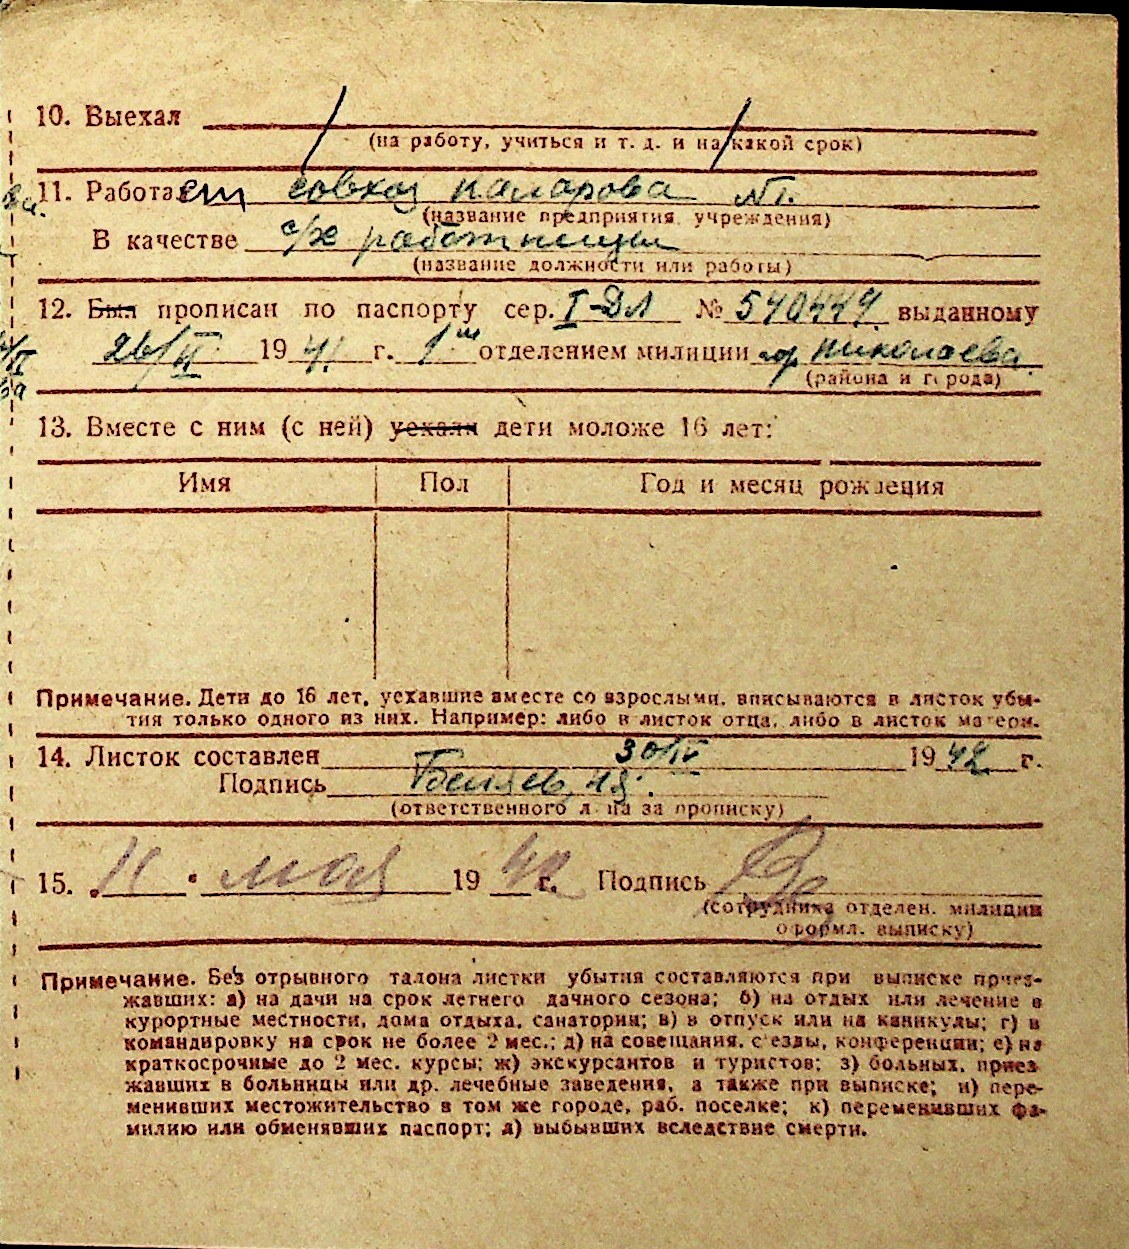 10. Выехал
(на работу, учиться и т. д. и на какой срок)
11. Работает совхоз Коларова №1.
(название предприятия, учреждения)
В качестве с/х работницы
(название должности или работы)
12. Был прописан по паспорту сер. I-ДЛ № 540449. выданному
26/II 1941 г. 1ым отделением милиции гор. Николаева
(района и города)
13. Вместе с ним (с ней) уехали дети моложе 16 лет:
Имя Пол Год и месяц рождения
Примечание. Дети до 16 лет, уехавшие вместе со взрослыми, вписываются в листок убы-
тия только одного из них. Например: либо в листок отца, либо в листок матери.
14. Листок составлен 30/IV 1942 г.
Подпись
(ответственного лица за прописку)
15. 11 мая 1942 г. Подпись
(сотрудника отделен. милиции
оформл. выписку)
Примечание. Без отрывного талона листки убытия составляются при выписке приез-
жавших: а) на дачи на срок летнего дачного сезона; б) на отдых или лечение в
курортные местности, дома отдыха, санатории; в) в отпуск или на каникулы; г) в
командировку на срок не более 2 мес.; д) на совещания, с'езды, конференции; е) на
краткосрочные до 2 мес. курсы; ж) экскурсантов и туристов; з) больных, приез
жавших в больницы или др. лечебные заведения, а также при выписке; и) пере-
менивших местожительство в том же городе, раб. поселке; к) переменивших фа-
милию или обменявших паспорт; л) выбывших вследствие смерти.